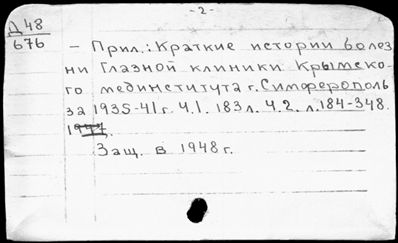 - 2 -
Д 48
676
– Прил.: Краткие истории болез
ни Глазной клиники Крымско-
го мединститута г. Симферополь
за 1935-41 г. Ч.1. 183 л. Ч.2. л. 184-348.
Защ. в 1948 г.